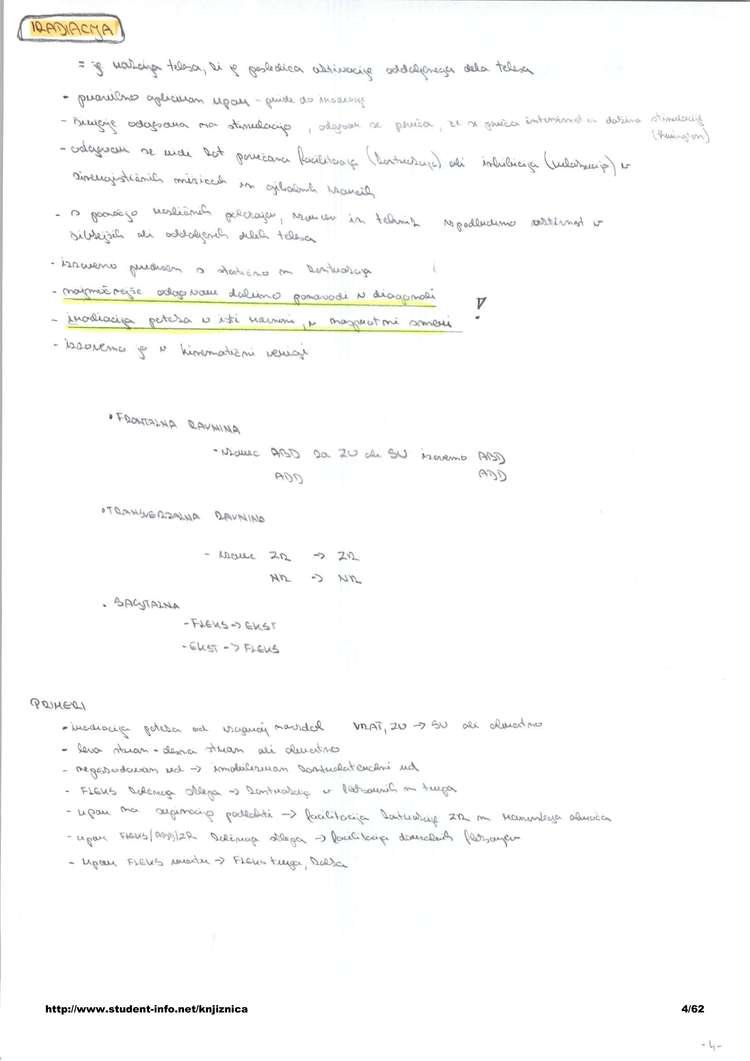 IRADIACIJA
= je vzdraženje telesa, ki je posledica aktivacije oddaljenega dela telesa
- pravilno apliciran upor - pride do iradiacije
- širjenje odgovora na stimulacijo, odgovor se poveča, če se poveča intenziteta in dolžina stimulacije
(Sherrington)
- odgovor se vidi kot povečana facilitacija (kontrakcija) ali inhibicija (relaksacija) v
sinergističnih mišicah in gibalnih vzorcih
- s pomočjo različnih položajev, vzorcev in tehnik vzpodbudimo aktivnost v
bližnjih ali oddaljenih delih telesa
- izzovemo predvsem s statično m. kontrakcijo
- najmočnejše odgovore dobimo ponavadi v diagonali
- iradiacija poteka v isti ravnini, v nasprotni smeri !
- izzovemo jo v kinematični verigi
• FRONTALNA RAVNINA
- vzorec ABD za ZU ali SU izzovemo ABD
ADD ADD
• TRANSVERZALNA RAVNINA
- vzorec ZR -> ZR
NR -> NR
• SAGITALNA
- FLEKS -> EKST
- EKST -> FLEKS
PRIMERI
- iradiacija poteka od zgoraj navzdol VRAT, ZU -> SU ali obratno
- leva stran - desna stran ali obratno
- nepoškodovan ud -> imobiliziran kontralateralni ud
- FLEKS kolčnega sklepa -> kontrakcija v trebušnih m. trupa
- upor na supinacijo podlakti -> facilitacija kontrakcije ZR m. ramenskega obroča
- upor FLEKS/ADD/ZR kolčnega sklepa -> facilitacija
- upor FLEKS vratu -> FLEKS trupa, kolka
http://www.student-info.net/knjiznica 4/62
- 4 -